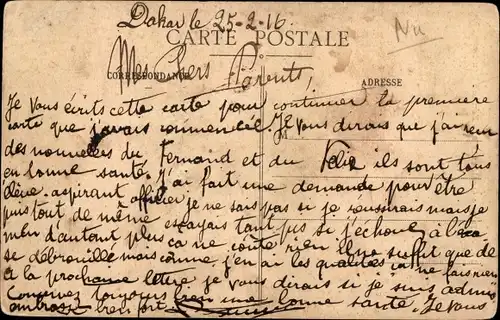 Dakar le 25-2-16
Nu
CARTE POSTALE
Mes Chers Parents,
CORRESPONDANCE
ADRESSE
Je vous écrits cette carte pour continuer la première
carte que j'avais commencée. Je vous dirais que j'ai reçu
des nouvelles du Fernand et du Felix ils sont tous
en bonne santé. J'ai fait une demande pour être
élève-aspirant officier je ne sais pas si je réussirais mais je
puis tout de même essayais tant pis si j'échoue à
d'autant plus ça ne coûte rien. Une suffit que de
se débrouiller mais comme j'en ai les qualités ça ne fais rien
à la prochaine lettre je vous dirais si je suis admis
Conservez toujours bien une bonne santé. Je vous
embrasse bien fort